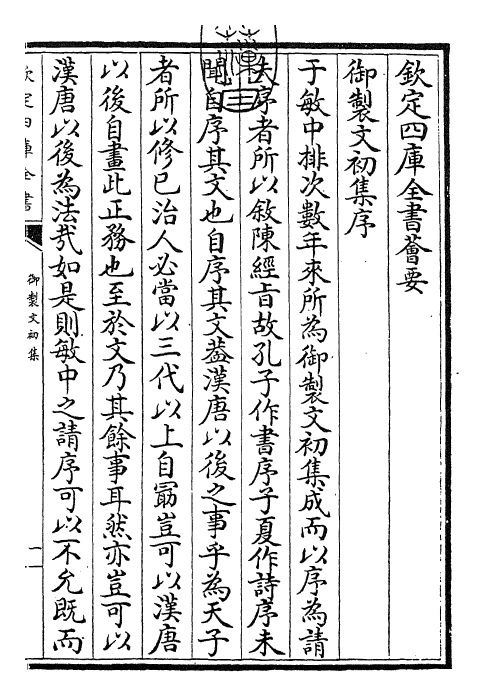 欽定四庫全書薈要
御製文初集序
于敏中排次數年來所為御製文初集成而以序為請
夫序者所以敘陳經旨故孔子作書序子夏作詩序未
聞自序其文也自序其文葢漢唐以後之事乎為天子
者所以修已治人必當以三代以上自勖豈可以漢唐
以後自畫此正務也至於文乃其餘事耳然亦豈可以
漢唐以後為法㢤如是則敏中之請序可以不允既而
欽定四庫全書
御製文初集
一